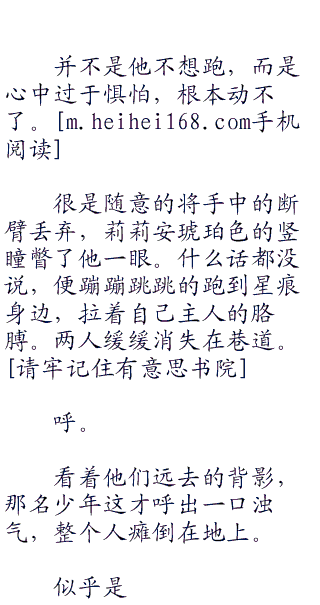 并不是他不想跑，而是
心中过于惧怕，根本动不
了。[m.heihei168.com手机
阅读]
很是随意的将手中的断
臂丢弃，莉莉安琥珀色的竖
瞳瞥了他一眼。什么话都没
说，便蹦蹦跳跳的跑到星痕
身边，拉着自己主人的胳
膊。两人缓缓消失在巷道。
[请牢记住有意思书院]
呼。
看着他们远去的背影，
那名少年这才呼出一口浊
气，整个人瘫倒在地上。
似乎是